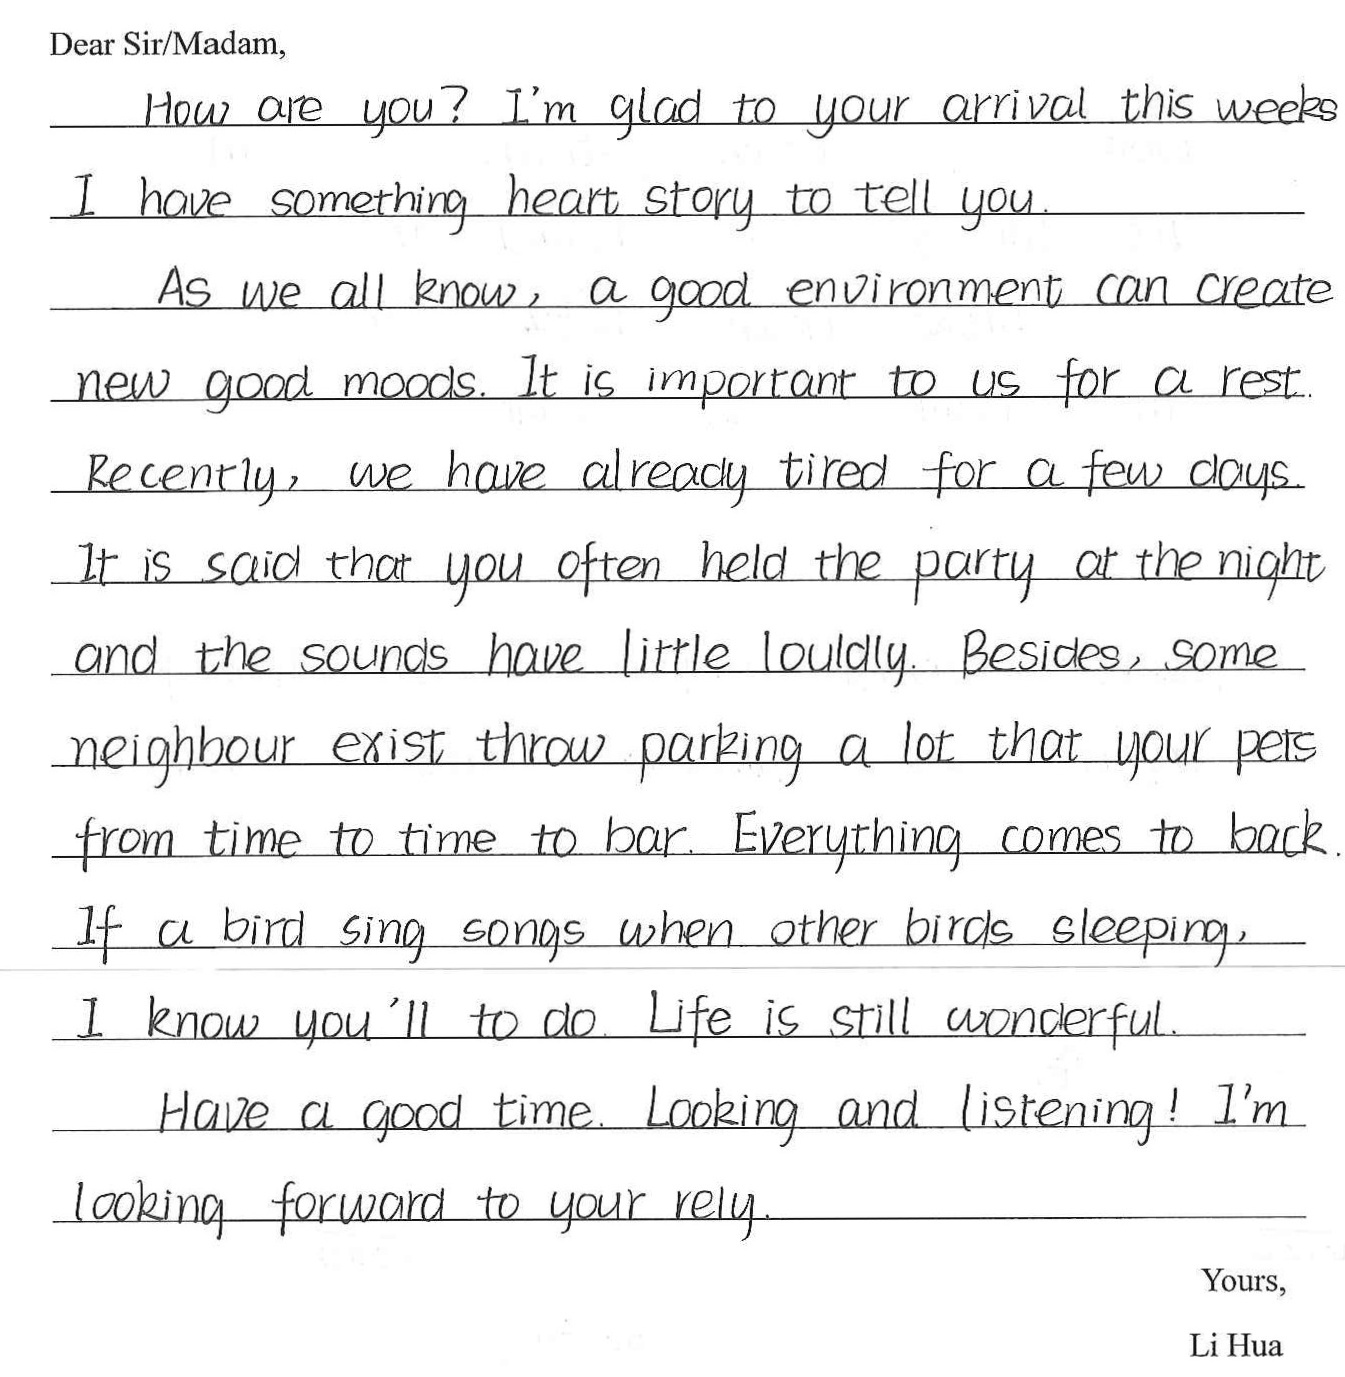 Dear Sir/Madam,
How are you? I'm glad to your arrival this weeks
I have something heart story to tell you.
As we all know, a good environment can create
new good moods. It is important to us for a rest.
Recently, we have already tired for a few days.
It is said that you often held the party at the night
and the sounds have little louldly. Besides, some
neighbour exist throw parking a lot that your pets
from time to time to bar. Everything comes to back.
If a bird sing songs when other birds sleeping,
I know you'll to do. Life is still wonderful.
Have a good time. Looking and listening! I'm
looking forward to your rely.
Yours,
Li Hua